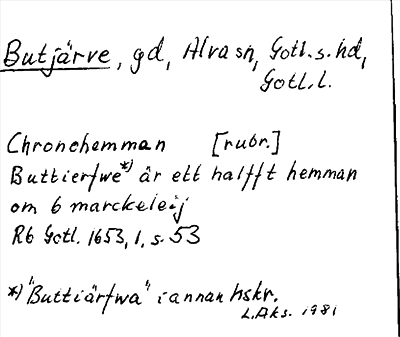 Butjärve, gd, Alva sn, Gotl. s. hd,
Gotl. l.
Chronehemman [rubr.]
Buttierfwe*) är ett halfft hemman
om 6 marckeleij
Rb Gotl. 1653, 1, s. 53
*) "Buttiärfwa" i annan hskr.
L. Aks. 1981